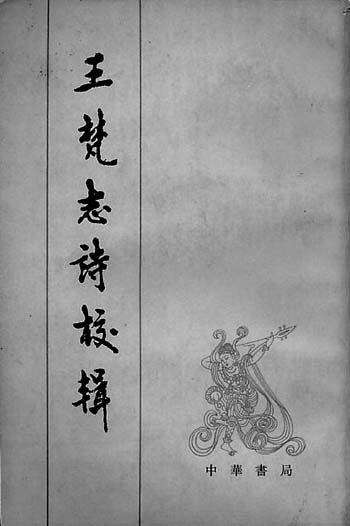 王梵志诗校辑
中華書局